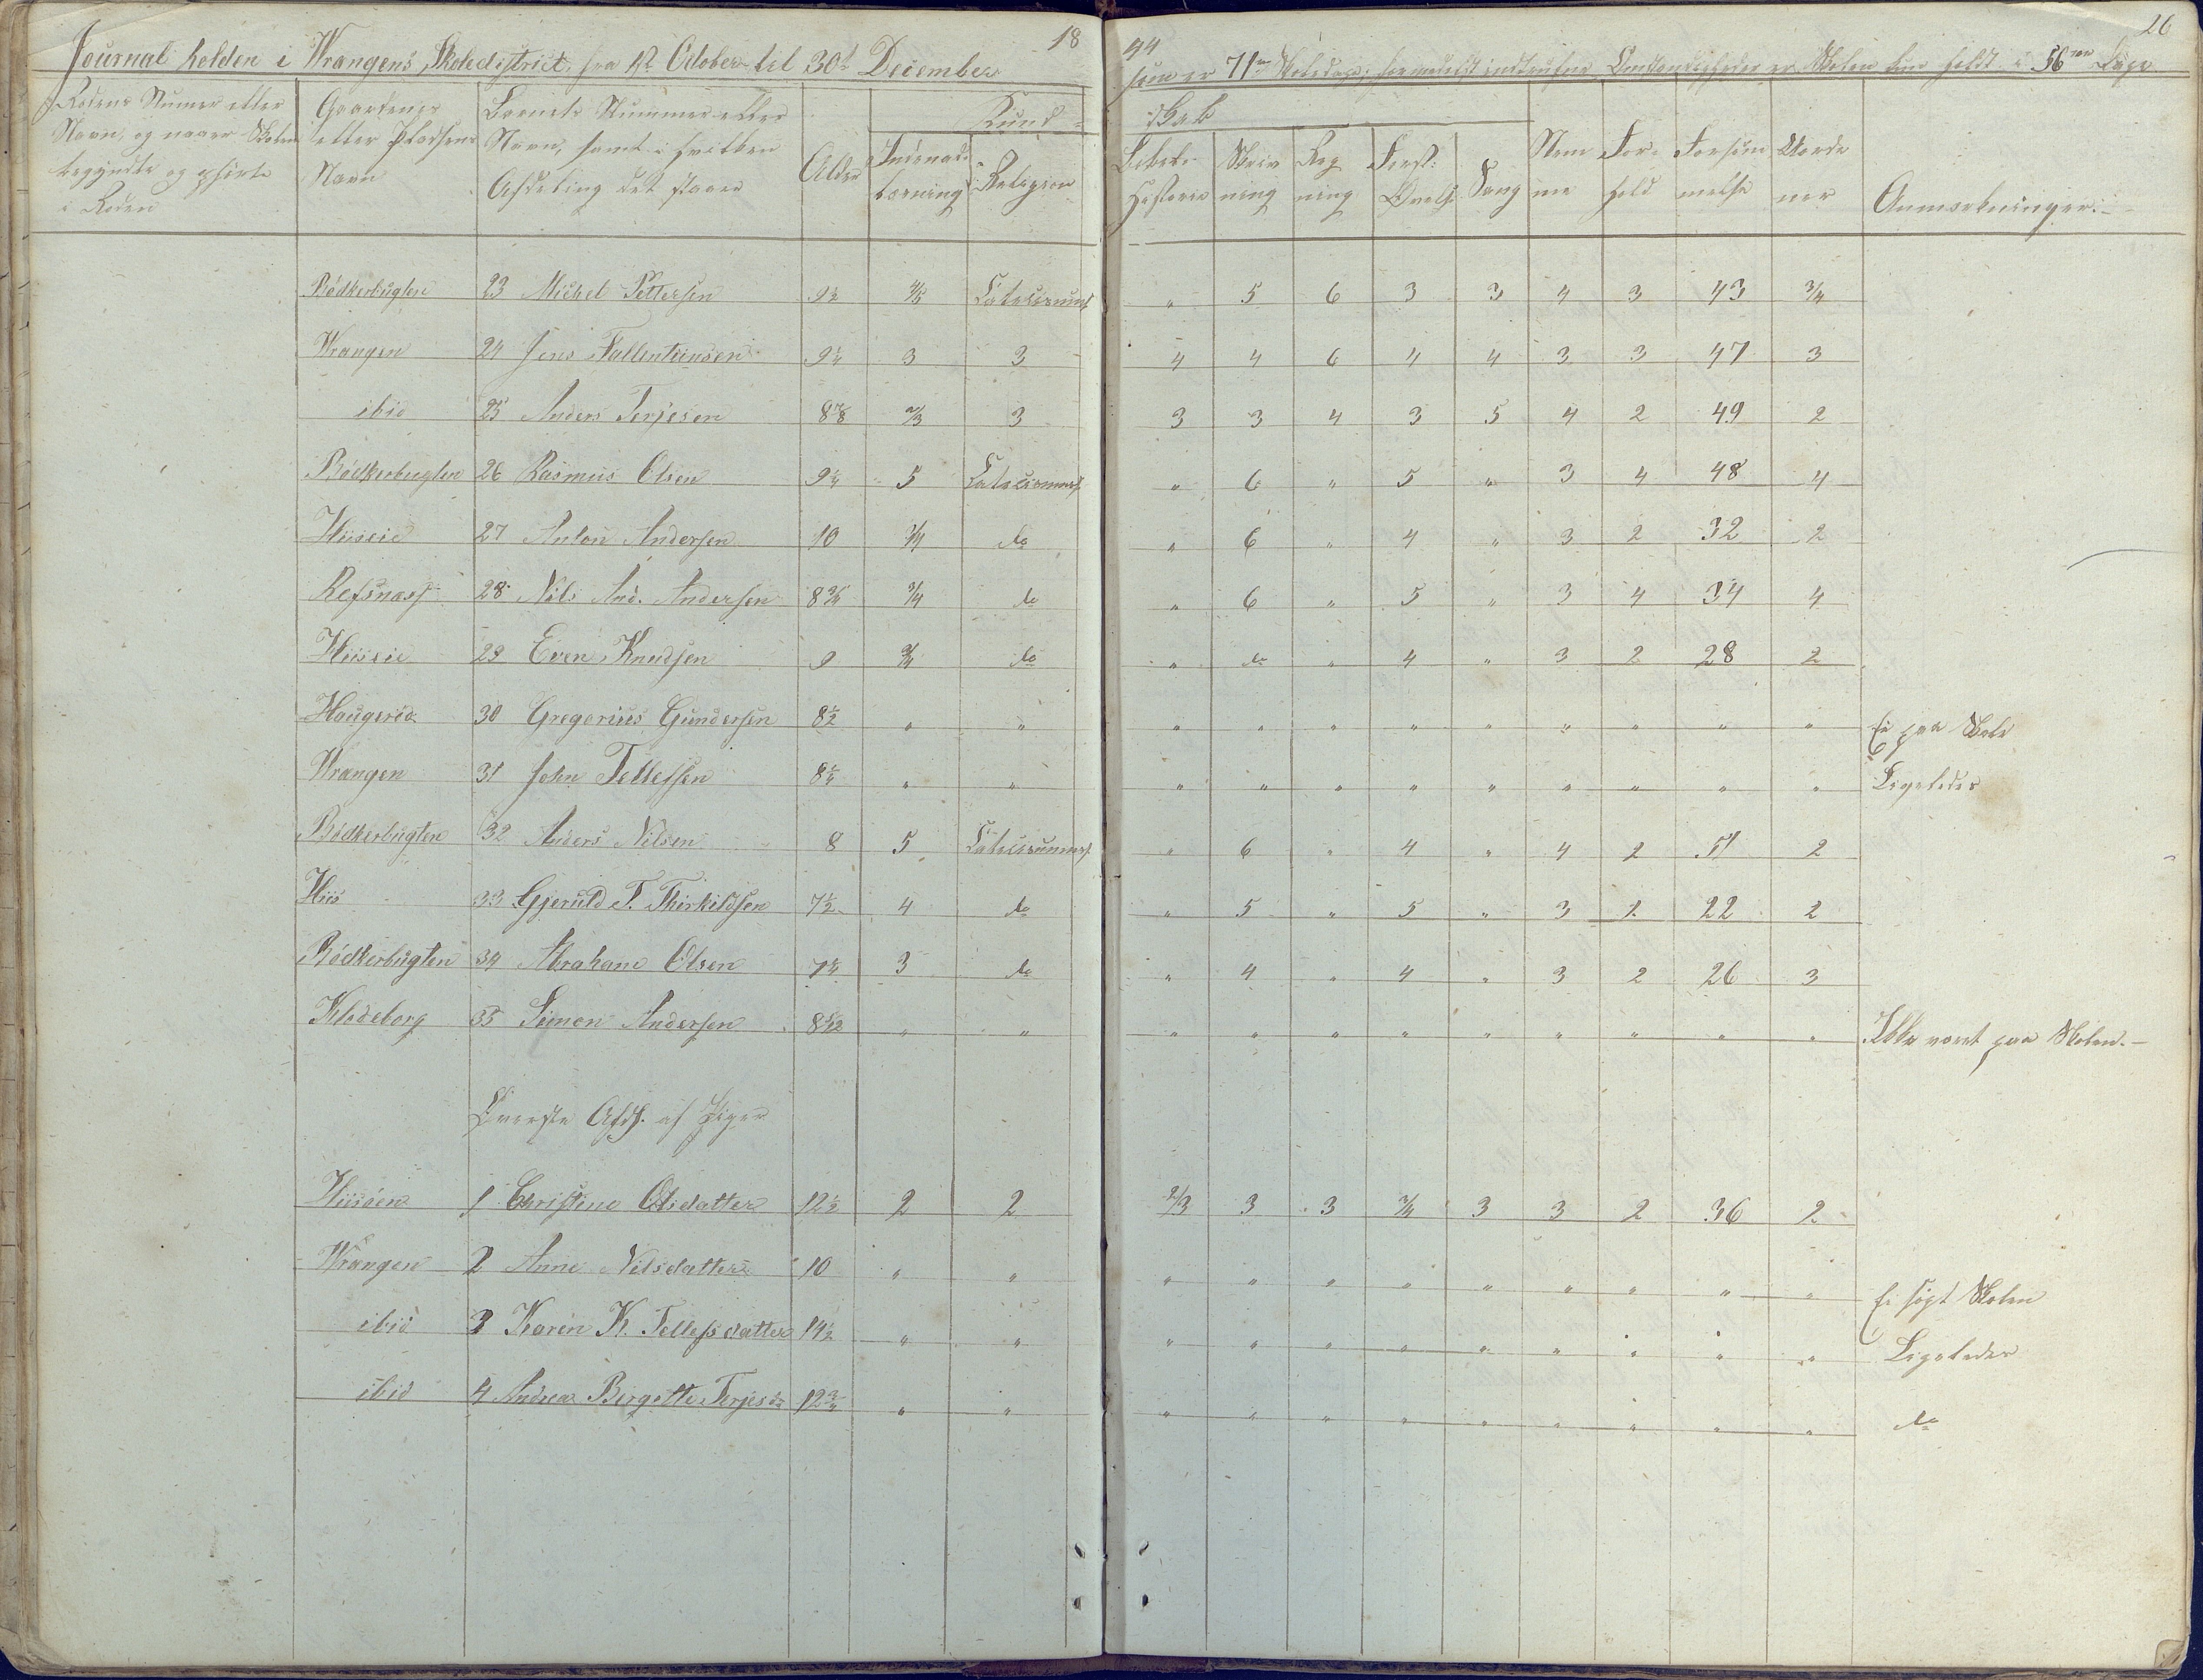 Journal holden i Wrangens Skoledistrict fra 1st October til 30t December 18
44 26
som er 71 Skoledage; formedelst indtrufne Omstændigheder er Skolen kun holdt i 56 Dage
Rodens Numer eller Navn, og naar Skolen begyndte og ophørte i Roden
Gaardenes eller Pladsens Navn
Barnets Nummer eller Navn, samt i hvilken Afdeling det staaer
Alder
Kund-
skab
Indenad-læsning
Religion
Bibels-Historie
Skriv ning
Reg ning
Forst: Øvelse
Sang
Nem me
For-hold
Forsøm melse
Anmærkninger.
Bödkerbugten 23 Michel Pettersen 9½ 4/5 Catecismus " 5 6 3 3 4 3 43 3/4
Wrangen 24 Jens Fallentinsen 9¼ 3 3 4 4 6 4 4 3 3 47 3
ibid 25 Anders Terjesen 8 7/8 2/3 3 3 3 4 3 5 4 2 49 2
Bödkerbugten 26 Rasmus Olsen 9¼ 5 Catecismus " 6 " 5 " 3 4 48 4
Hiiseie 27 Anton Andersen 10 3/4 do " 6 " 4 " 3 2 32 2
Refsnæss 28 Nils And. Andersen 8¾ 3/4 do " 6 " 5 " 3 4 34 4
Hiiseie 29 Even Knudsen 9 3/4 do " do " 4 " 3 2 28 2
Haugeröd 30 Gregorius Gundersen 8½ " " " " " " " " " " " Ei paa Skole
Wrangen 31 John Tellefsen 8¼ " " " " " " " " " " " Ligeledes
Bödkerbugten 32 Anders Nilsen 8 5 Catecismus " 6 " 4 " 4 2 51 2
Hiis 33 Gjeruld T. Thorkildsen 7½ 4 do " 5 " 5 " 3 2 22 2
Bödkerbugten 34 Abraham Olsen 7¼ 3 do " 4 " 4 " 3 2 26 3
Klodeborg 35 Simon Andersen 8 5/12 " " " " " " " " " " " Ikke været paa Skolen.
Øverste Afd. af Piger
Hiisöen 1 Christine Olsdatter 12½ 2 2 2/3 3 3 3/4 3 3 2 36 2
Wrangen 2 Anne Nilsdatter 10 " " " " " " " " " " " Ei søgt Skolen
ibid 3 Karen K. Tellefsdatter 14½ " " " " " " " " " " " Ligeledes
ibid 4 Andrea Birgette Terjesdr 12¾ " " " " " " " " " " " do